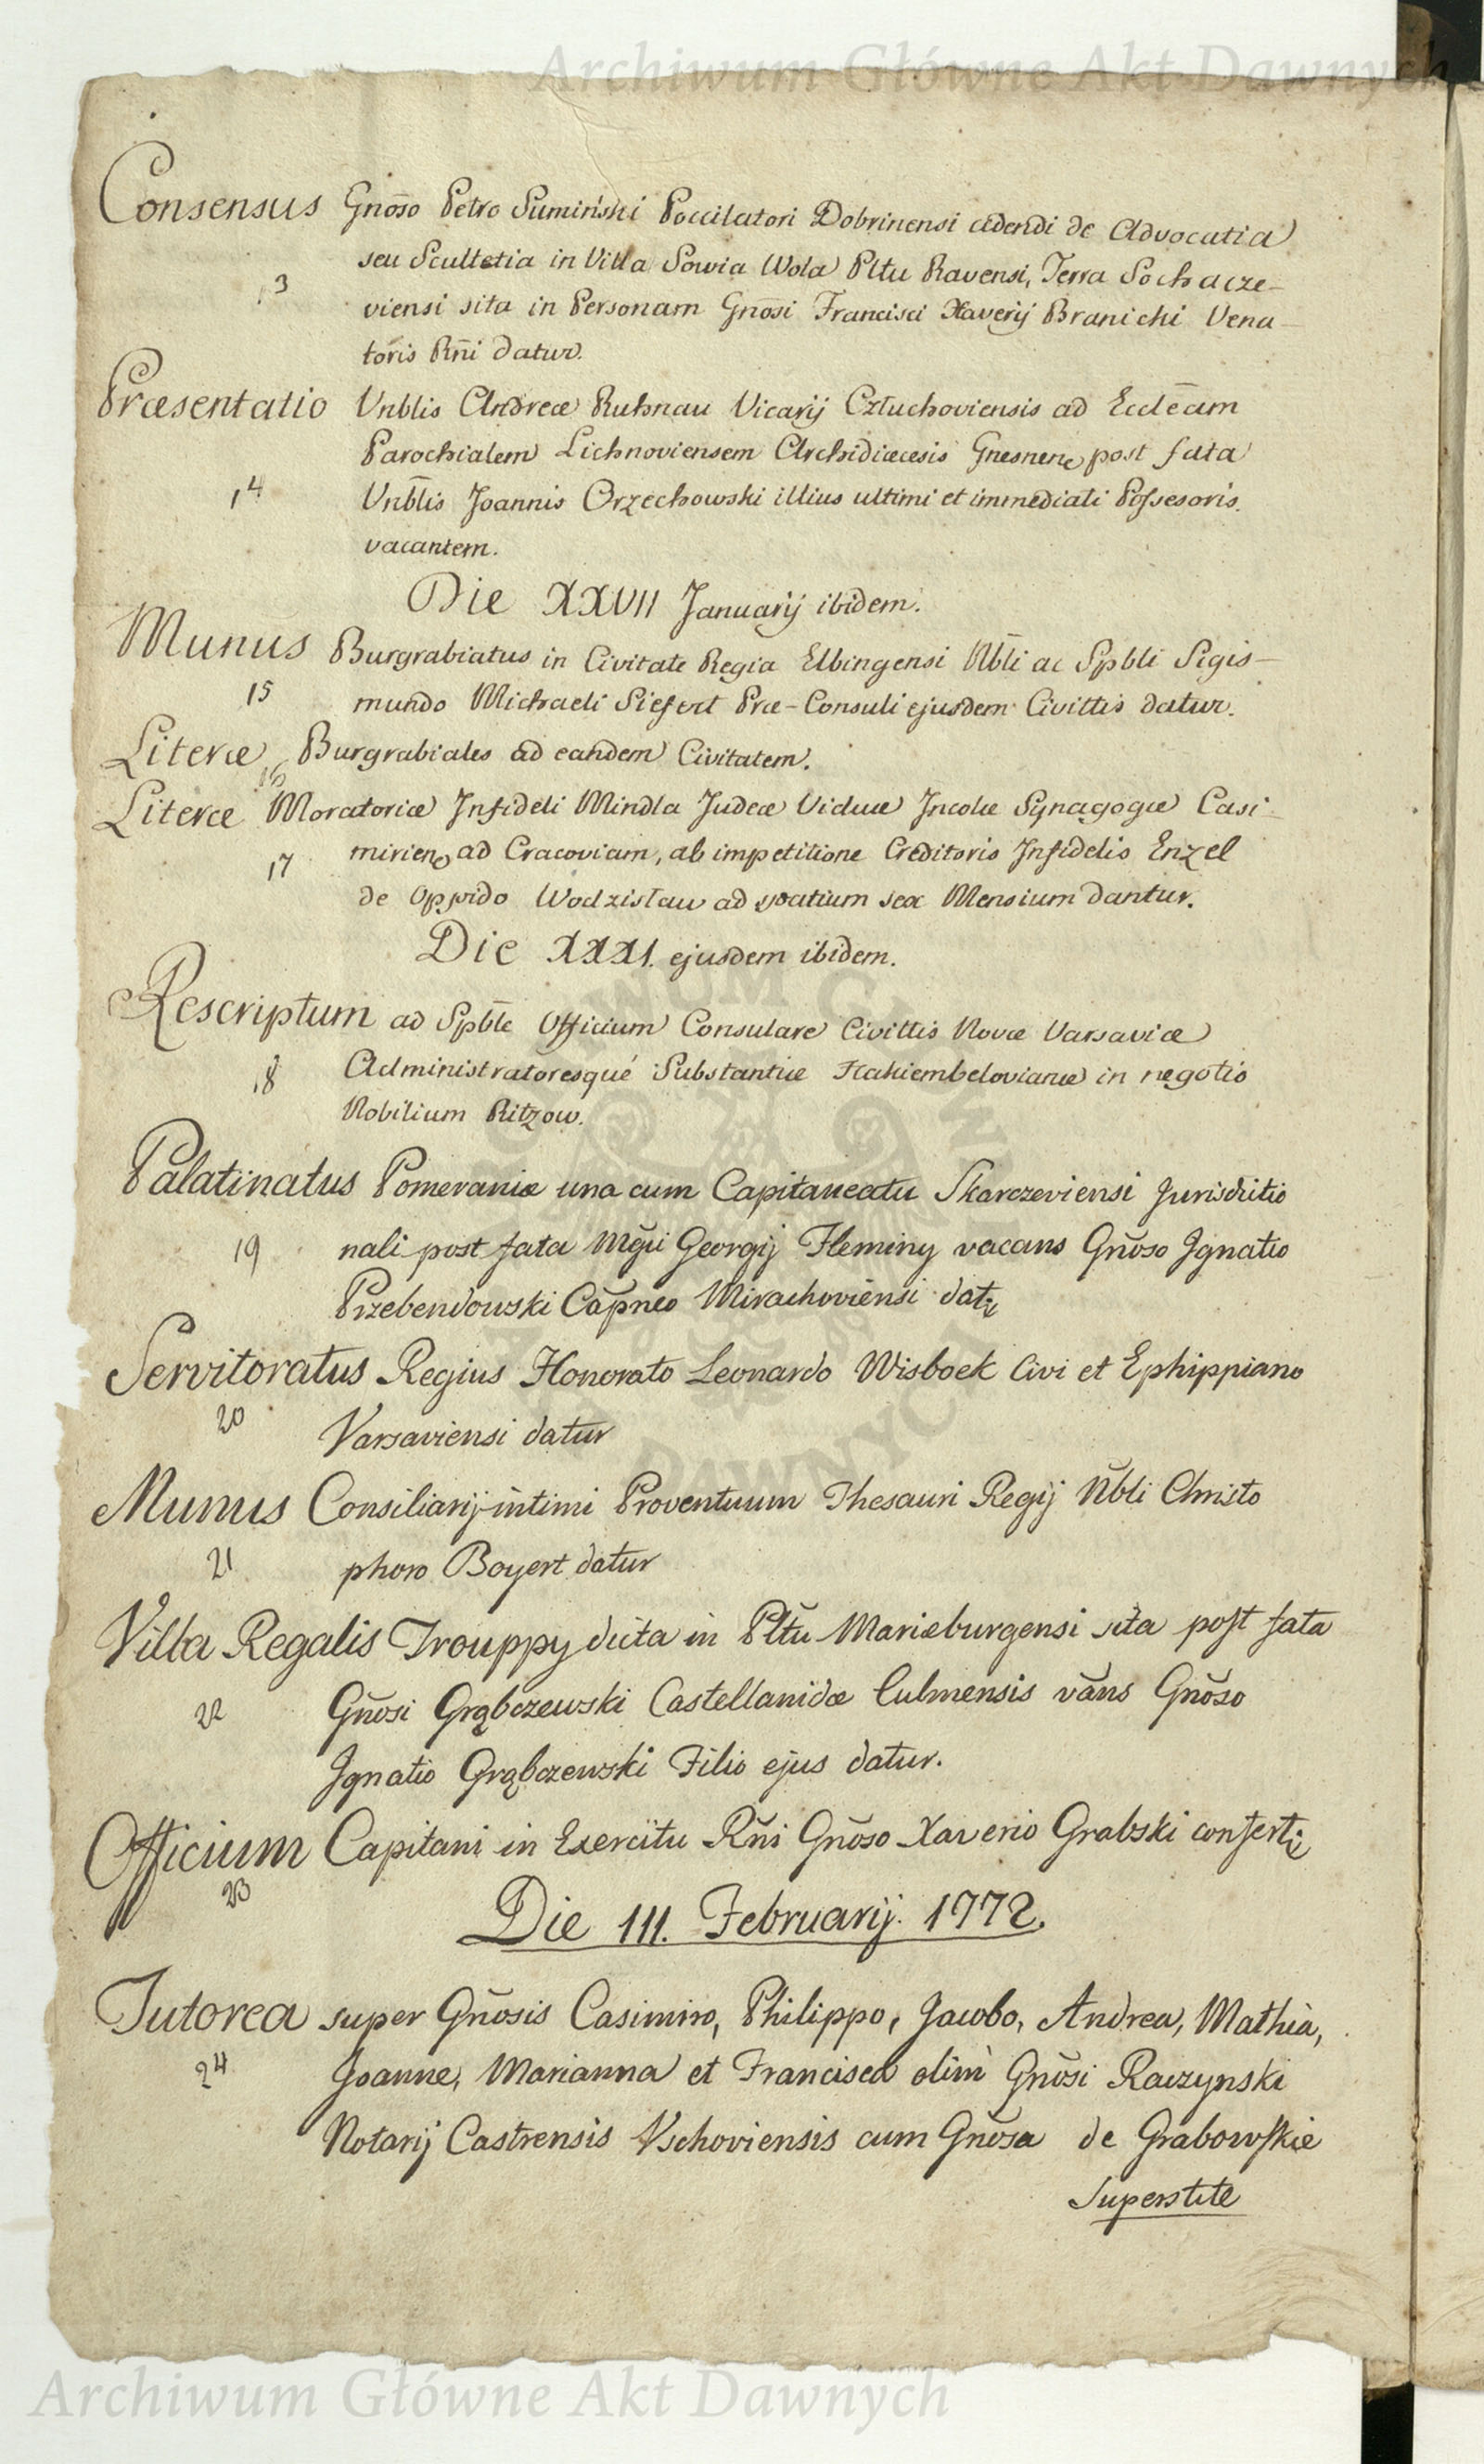 Archiwum Główne Akt Dawnych
Consensus Gnōso Petro Sumiński Poccilatori Dobrinensi cedendi de Advocatia
seu Scultetia in Villa Sowia Wola Pltu Ravensi, Terra Sochacze-
13
viensi sita in Personam Gnōsi Francisci Xaverij Branichi Vena-
toris Rñi datur.
Præsentatio Vnblis Andreæ Ruhnau Vicarij Człuchoviensis ad Eccleām
Parochialem Lichnoviensem Archidiæcesis Gnesnene post fata
14
Vnblis Joannis Orzechowski illius ultimi et immediati Possesoris.
vacantem.
Die XXVII Januarij ibidem.
Munus Burgrabiatus in Civitate Regia Elbingensi Nbli ac Spbli Sigis-
15
mundo Michaeli Siefert Præ-Consuli ejusdem Civittis datur.
Literæ Burgrabiales ad eandem Civitatem.
16
Literæ Moratoriæ Infideli Mindla Judeæ Viduæ Incolæ Synagogæ Casi-
mirienę ad Cracoviam, ab impetitione Creditoris Infidelis Enzel
17
de Oppido Wodzislau ad spatium sex Mensium dantur.
Die XXXI. ejusdem ibidem.
Rescriptum ad Spble Officium Consulare Civittis Novæ Varsaviæ
18
Administratoresqué Substantiæ Hakiembelovianæ in negotio
Nobilium Ritzow.
Palatinatus Pomeraniæ una cum Capitaneatu Skarczeviensi Jurisdictio
19
nali post fata Mgũi Georgij Fleming vacans Gnũso Ignatio
Przebendowski Capneo Mirachoviensi datĩ
Servitoratus Regius Honorato Leonardo Wisboek Civi et Ephippiano
20
Varsaviensi datur
Munus Consiliarij intimi Proventuum Thesauri Regij Nbli Christo
21
phoro Boyert datur
Villa Regalis Trouppy dicta in Pltu Mariæburgensi sita post fata
22
Gnõsi Grąbczewski Castellanidæ Culmensis vãns Gnõso
Ignatio Grąbczewski Filio ejus datur.
Officium Capitani in Exercitu Rñi Gnõso Xaverio Grabski confertĩ
23
Die III. Februarij. 1772.
Tutorea super Gnõsis Casimiro, Philippo, Jacobo, Andrea, Mathia,
24
Joanne, Marianna et Francisca olim Gnõsi Raczynski
Notarij Castrensis Vschoviensis cum Gnõsa de Grabowskie
superstite
Archiwum Główne Akt Dawnych